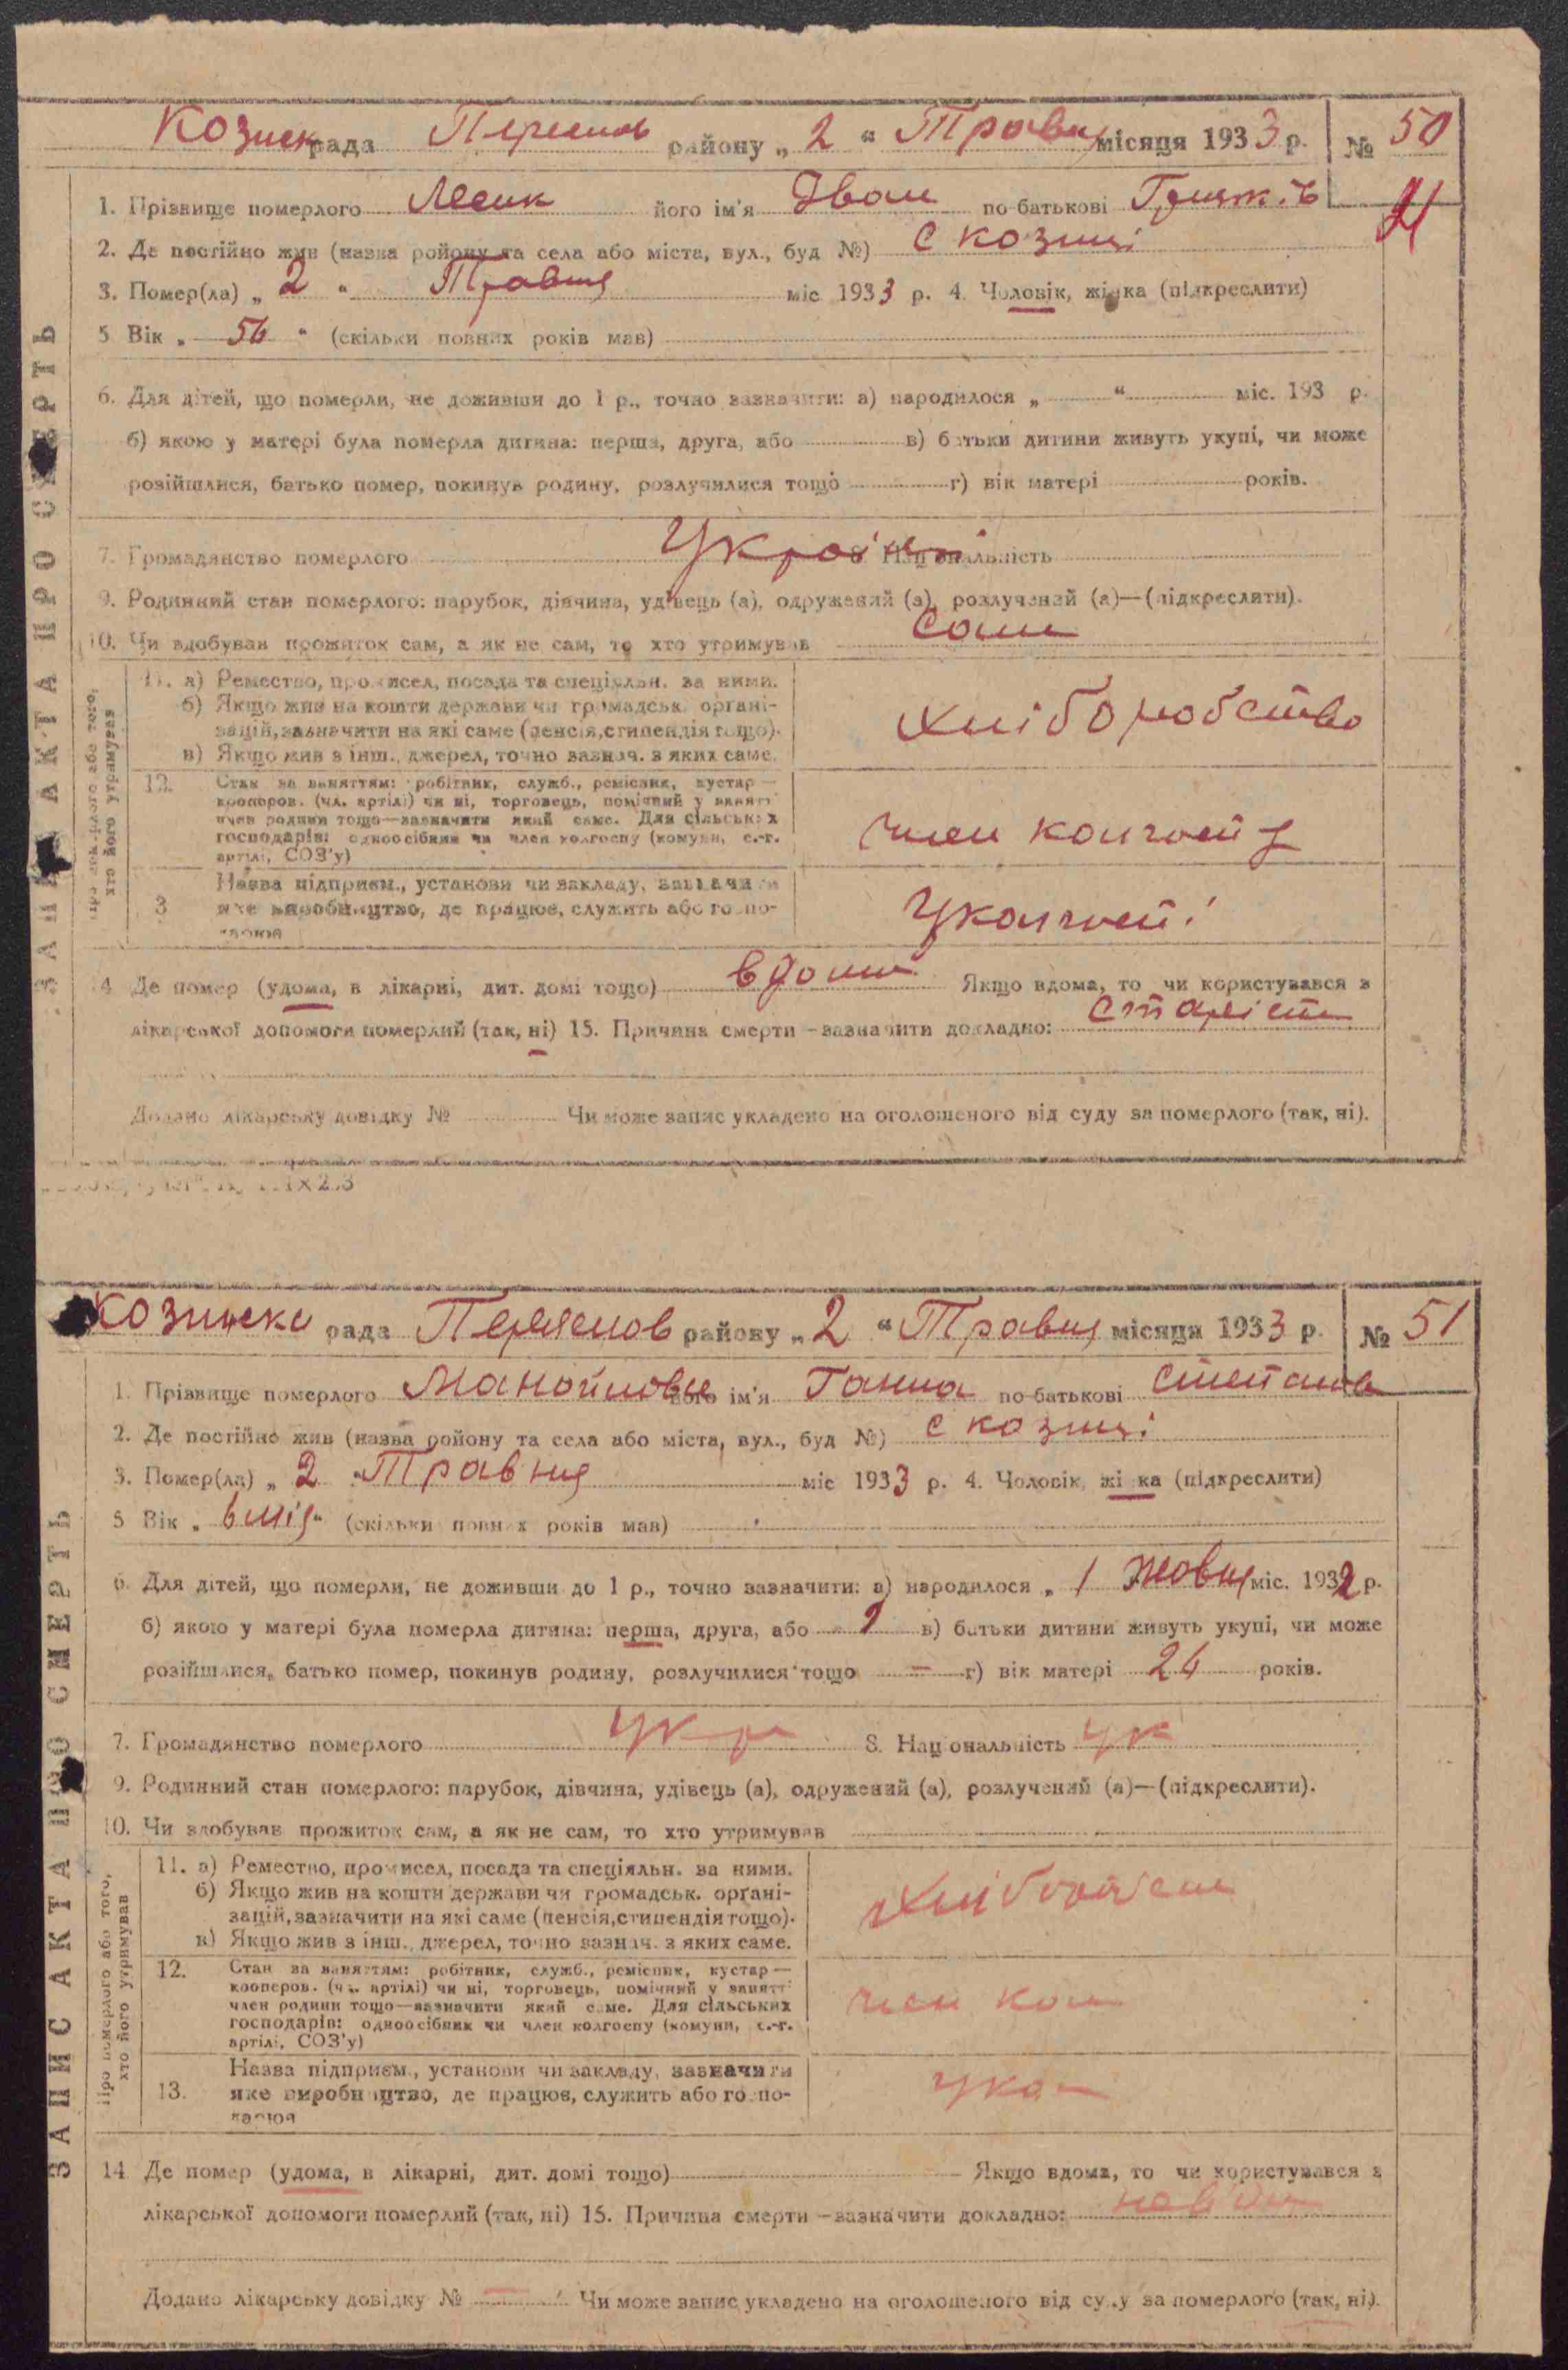 Козиск рада Переяслов району „ 2 “ Травня місяця 1933 р. № 50
1. Прізвище померлого Лесик його ім'я Іван по-батькові
21
2. Де постійно жив (назва ройону та села або міста, вул., буд №) с козинці
3. Помер(ла) „ 2 “ Травня міс 1933 р. 4. Чоловік, жінка (підкреслити)
5 Вік „ 56 “ (скільки повних років мав)
6. Для дітей, що померли, не доживши до 1 р., точно зазначити: а) народилося „ “ міс. 193 р.
б) якою у матері була померла дитина: перша, друга, або в) батьки дитини живуть укупі, чи може
розійшлися, батько помер, покинув родину, розлучилися тощо г) вік матері років.
7. Громадянство померлого 8. Національність
9. Родинний стан померлого: парубок, дівчина, удівець (а), одружений (а), розлучений (а)—(підкреслити).
10. Чи здобував прожиток сам, а як не сам, то хто утримував сам
11. а) Ремество, промисел, посада та спеціяльн. за ними.
б) Якщо жив на кошти держави чи громадськ. органі-
зацій, зазначити на які саме (пенсія, стипендія тощо).
в) Якщо жив з інш., джерел, точно зазнач. з яких саме.
хліборобство
12. Стан за заняттям: робітник, служб., ремісник, кустар —
кооперов. (чл. артілі) чи ні, торговець, помічний у занятті
член родини тощо—зазначити який саме. Для сільських
господарів: одноосібник чи член колгоспу (комуни, с.-г.
артілі, СОЗ'у)
член колгоспу
13 Назва підприєм., установи чи закладу, зазначити
яке виробництво, де працює, служить або госпо-
дарює
у колгоспі
Про померлого або того, хто його утримував
ЗАПИС АКТА ПРО СМЕРТЬ
14 Де помер (удома, в лікарні, дит. домі тощо) вдома Якщо вдома, то чи користувався з
лікарської допомоги померлий (так, ні) 15. Причина смерти –зазначити докладно: старість
Додано лікарську довідку № Чи може запис укладено на оголошеного від суду за померлого (так, ні).
Козинска рада Переяслов району „ 2 “ Травня місяця 1933 р. № 51
1. Прізвище померлого його ім'я Ганна по-батькові Степанов
2. Де постійно жив (назва ройону та села або міста, вул., буд №) с козинці
3. Помер(ла) „ 2 “ Травня міс 1933 р. 4. Чоловік, жінка (підкреслити)
5 Вік „ 6 міс “ (скільки повних років мав)
6. Для дітей, що померли, не доживши до 1 р., точно зазначити: а) народилося „ 1 Жовтн міс. 1932 р.
б) якою у матері була померла дитина: перша, друга, або 1 в) батьки дитини живуть укупі, чи може
розійшлися, батько помер, покинув родину, розлучилися тощо — г) вік матері 26 років.
7. Громадянство померлого укр 8. Національність ук
9. Родинний стан померлого: парубок, дівчина, удівець (а), одружений (а), розлучений (а)—(підкреслити).
10. Чи здобував прожиток сам, а як не сам, то хто утримував
11. а) Ремество, промисел, посада та спеціяльн. за ними.
б) Якщо жив на кошти держави чи громадськ. органі-
зацій, зазначити на які саме (пенсія, стипендія тощо).
в) Якщо жив з інш., джерел, точно зазнач. з яких саме.
12. Стан за заняттям: робітник, служб., ремісник, кустар —
кооперов. (чл. артілі) чи ні, торговець, помічний у занятті
член родини тощо—зазначити який саме. Для сільських
господарів: одноосібник чи член колгоспу (комуни, с.-г.
артілі, СОЗ'у)
член кол
13. Назва підприєм., установи чи закладу, зазначити
яке виробництво, де працює, служить або госпо-
дарює
у кол
Про померлого або того, хто його утримував
ЗАПИС АКТА ПРО СМЕРТЬ
14 Де помер (удома, в лікарні, дит. домі тощо) Якщо вдома, то чи користувався з
лікарської допомоги померлий (так, ні) 15. Причина смерти –зазначити докладно:
Додано лікарську довідку № — Чи може запис укладено на оголошеного від суду за померлого (так, ні).